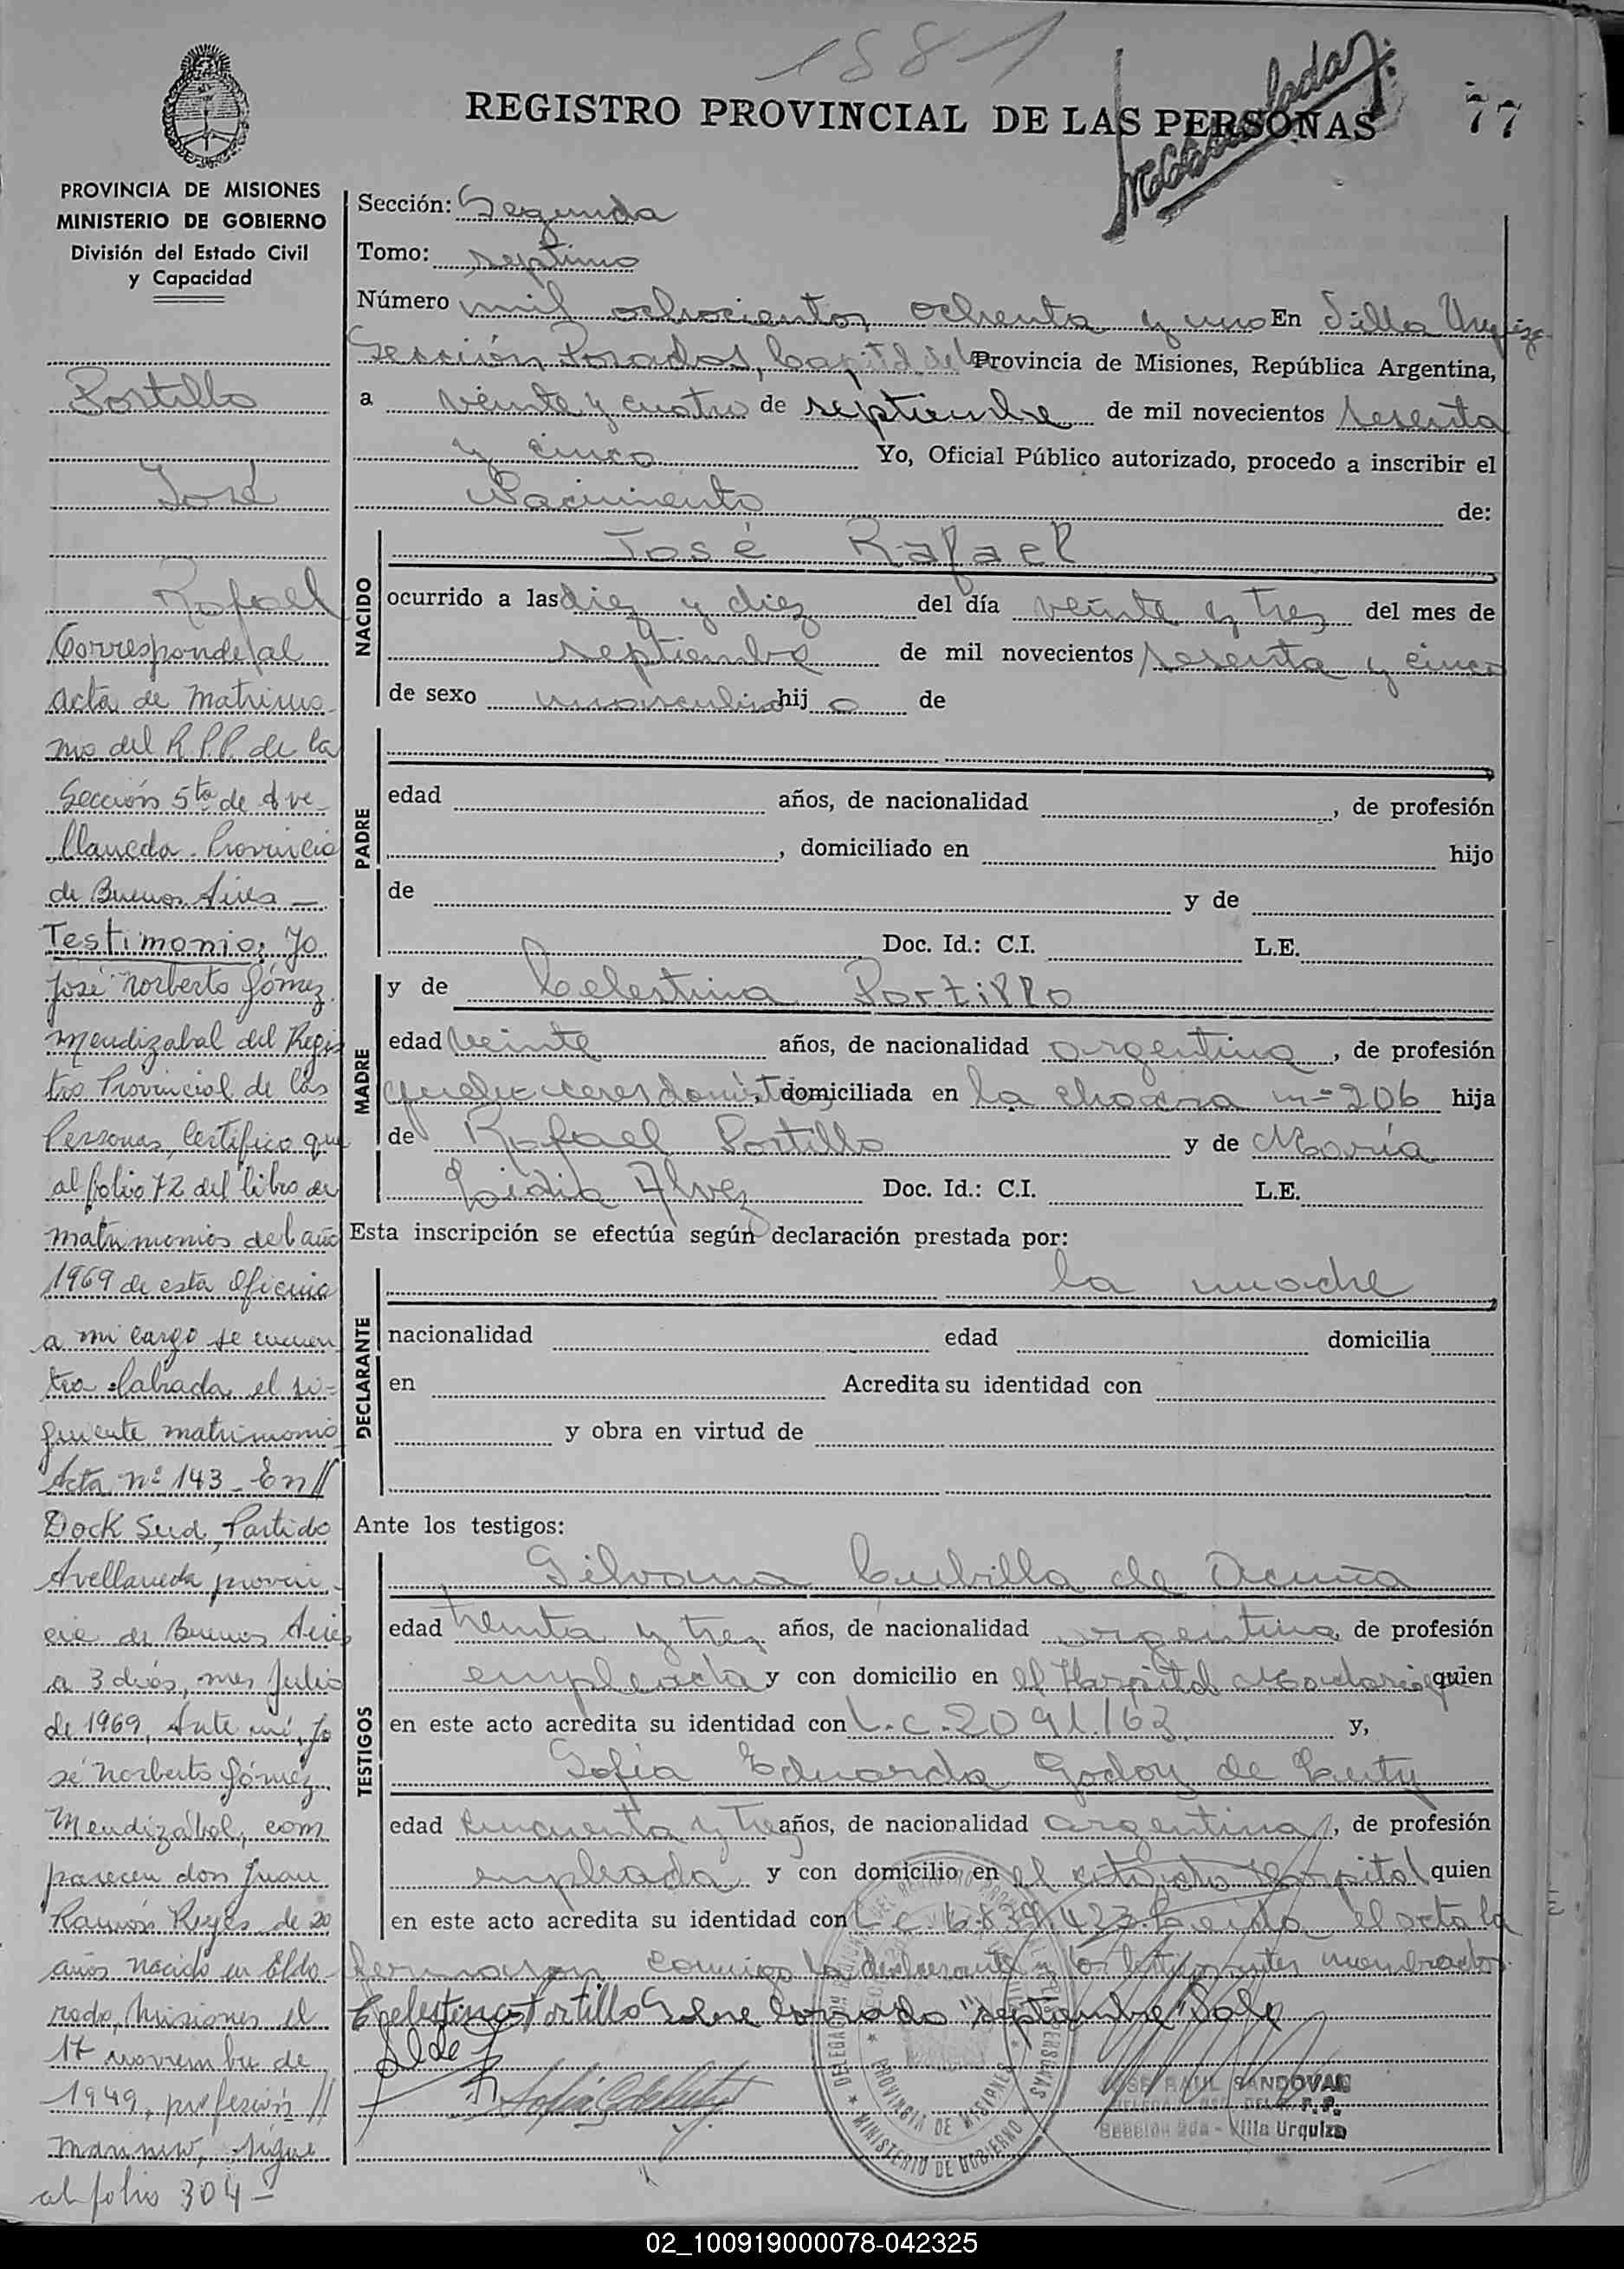 1881
REGISTRO PROVINCIAL DE LAS PERSONAS
77
PROVINCIA DE MISIONES
MINISTERIO DE GOBIERNO
División del Estado Civil
y Capacidad
Portillo
José
Rafael
Corresponde al
acta de Matrimo
nio del R.P.P. de la
Sección 5ta de Ave
llaneda. Provincia
de Buenos Aires —
Testimonio: Yo
José Norberto Gómez
Mendizabal del Regis
tro Provincial de las
Personas, Certifico que
al folio 72 del libro de
matrimonios del año
1969 de esta Oficina
a mi cargo se encuen
tra labrada el si-
guiente matrimonio
Acta nº 143 - En //
Dock Sud, Partido
Avellaneda provin-
cia de Buenos Aires
a 3 dias, mes Julio
de 1969, Ante mi, Jo
sé Norberto Gómez
Mendizábal, com
parecen don Juan
Ramón Reyes de 20
años nacido en Eldo-
rado, Misiones el
17 noviembre de
1949, profesión //
marinero, sigue
al folio 304 -
Sección: Segunda
Tomo: septimo
Número mil ochocientos ochenta y uno En Villa Urquiza
Sección Posadas, Capital de la Provincia de Misiones, República Argentina,
a veinte y cuatro de septiembre de mil novecientos sesenta
y cinco Yo, Oficial Público autorizado, procedo a inscribir el
Nacimiento de:
NACIDO
José Rafael
ocurrido a las diez y diez del día veinte y tres del mes de
septiembre de mil novecientos sesenta y cinco
de sexo masculino hij o de
PADRE
edad años, de nacionalidad , de profesión
, domiciliado en hijo
de y de
Doc. Id.: C.I. L.E.
MADRE
y de Celestina Portillo
edad veinte años, de nacionalidad argentina, de profesión
quehaceres domést domiciliada en la chacra nº 206 hija
de Rafael Portillo y de María
Lidia Alvez Doc. Id.: C.I. L.E.
Esta inscripción se efectúa según declaración prestada por:
la madre
DECLARANTE
nacionalidad edad domicilia
en Acredita su identidad con
y obra en virtud de
Ante los testigos:
TESTIGOS
Silvana Cubilla de Acuña
edad treinta y tres años, de nacionalidad argentina de profesión
empleada y con domicilio en el Hospital Madariaga quien
en este acto acredita su identidad con L.C. 2091.163 y,
Sofía Eduarda Godoy de
edad cincuenta y tres años, de nacionalidad argentina, de profesión
empleada y con domicilio en el citado Hospital quien
en este acto acredita su identidad con L.C. 6.839.423. Leida el acta la
firmaron conmigo la declarante y los testigos antes nombrados
Celestina Portillo Sobre borrado "septiembre" Vale
JOSE RAUL SANDOVAL
Sección 2da - Villa Urquiza
PROVINCIA DE MISIONES
MINISTERIO DE GOBIERNO
02_100919000078-042325